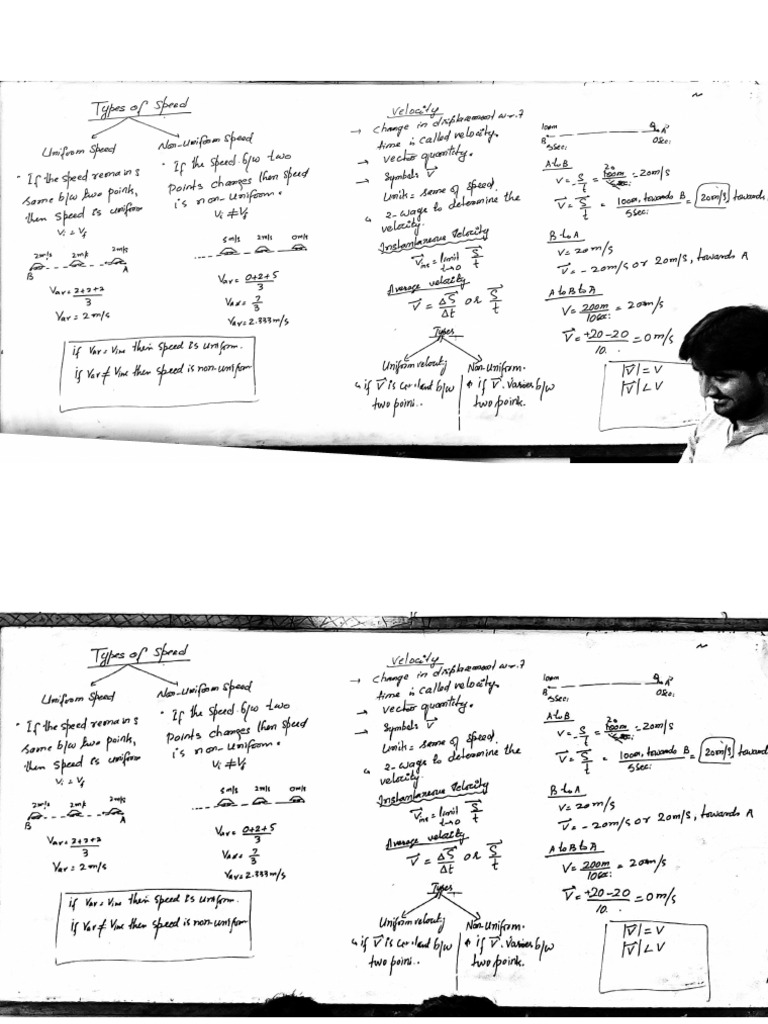 Types of Speed
Uniform Speed
• If the speed remains
same b/w two points,
then speed is uniform
Vi = Vf
2m/s 2m/s 2m/s
B A
Vav = 2+2+2
3
Vav = 2m/s
Non-Uniform Speed
• If the speed b/w two
points changes then speed
is non-uniform.
Vi ≠ Vf
5m/s 2m/s 0m/s
Vav = 0+2+5
3
Vav = 7
3
Vav = 2.333m/s
if Vav = Vins then speed is uniform.
if Vav ≠ Vins then speed is non-uniform
Velocity
→ change in displacement w.r.t
time is called velocity.
→ vector quantity.
→ Symbols V
Unit = same of speed.
2-ways to determine the
velocity.
Instantaneous Velocity
Vins = limit S
t→0 t
Average velocity
V = ΔS or S
Δt t
Types
Uniform velocity
if V is constant b/w
two points..
Non-Uniform.
if V varies b/w
two points.
100m 0
B A
5Sec: 0Sec:
A to B
V = S = 100m = 20m/s
t 5sec
V = S = 100m, towards B = 20m/s towards
t 5sec
B to A
V = 20m/s
V = -20m/s or 20m/s, towards A
A to B to A
V = 200m = 20m/s
10sec:
V = +20-20 = 0m/s
10.
|V| = V
|V| < V
Types of Speed
Uniform Speed
• If the speed remains
same b/w two points,
then speed is uniform
Vi = Vf
2m/s 2m/s 2m/s
B A
Vav = 2+2+2
3
Vav = 2m/s
Non-Uniform Speed
• If the speed b/w two
points changes then speed
is non-uniform.
Vi ≠ Vf
5m/s 2m/s 0m/s
Vav = 0+2+5
3
Vav = 7
3
Vav = 2.333m/s
if Vav = Vins then speed is uniform.
if Vav ≠ Vins then speed is non-uniform
Velocity
→ change in displacement w.r.t
time is called velocity.
→ vector quantity.
→ Symbols V
Unit = same of speed.
2-ways to determine the
velocity.
Instantaneous Velocity
Vins = limit S
t→0 t
Average velocity
V = ΔS or S
Δt t
Types
Uniform velocity
if V is constant b/w
two points..
Non-Uniform.
if V varies b/w
two points.
100m 0
B A
5Sec: 0Sec:
A to B
V = S = 100m = 20m/s
t 5sec
V = S = 100m, towards B = 20m/s towards
t 5sec
B to A
V = 20m/s
V = -20m/s or 20m/s, towards A
A to B to A
V = 200m = 20m/s
10sec:
V = +20-20 = 0m/s
10.
|V| = V
|V| < V